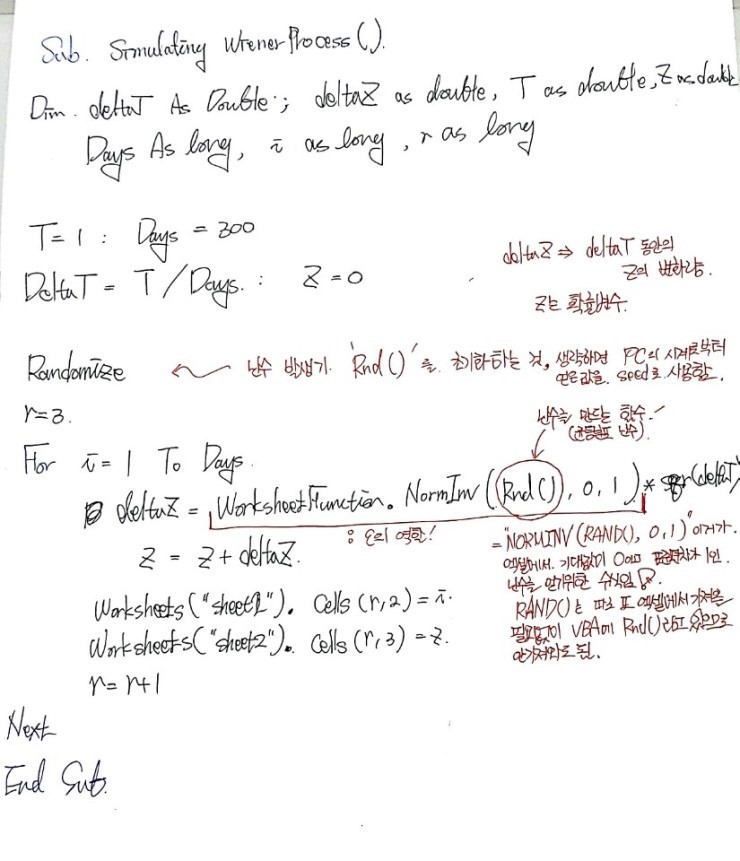 Sub. Simulating WienerProcess().
Dim. deltaT As Double; deltaZ as double, T as double, Z as double
Days As long, i as long, r as long
T=1 : Days = 300
deltaZ ⇒ deltaT 동안의
Z의 변화량.
DeltaT = T/Days. : Z=0
Z는 확률변수.
Randomize ← 난수 발생기 'Rnd()'을 초기화하는 것, 생략하면 PC의 시계로부터
얻은값을 seed로 사용함.
r=3.
난수를 만드는 함수.
(균등분포 난수).
For i=1 To Days.
deltaZ = WorksheetFunction. NormInv (Rnd(), 0, 1) * (deltaT)
: ε의 역할!
Z = Z + deltaZ.
="NORMINV(RAND(), 0,1)" 이거가.
엑셀에서. 기대값이 0이고 표준편차가 1인.
난수를 얻기위한 수식임
Worksheets("sheet1"). Cells (r,2) = i.
RAND()는 따로 엑셀에서 가져올
Worksheets("sheet2"). Cells (r,3) = Z.
필요없이 VBA에 Rnd()라고 있으므로
안가져와도 됨.
r= r+1
Next
End Sub.